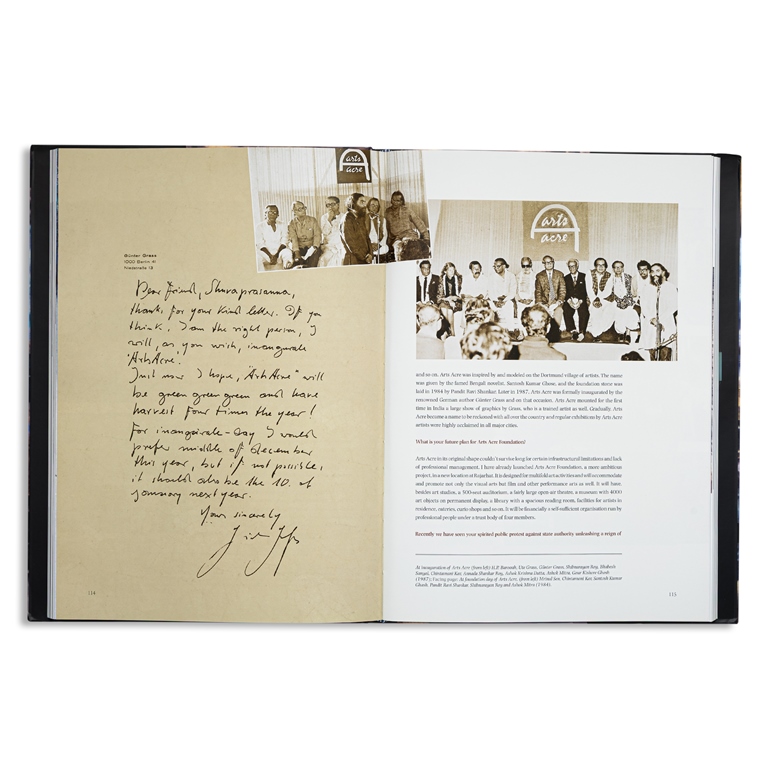 Günter Grass
1000 Berlin 41
Niedstraße 13
Dear Friend, Shuvaprasanna,
thanks for your kind letter. If you
think, I am the right person, I
will, as you wish, inaugurate
"ArtsAcre".
Just now I hope, "ArtsAcre" will
be green green green and have
harvest four times the year!
For inaugurate-day I would
prefer middle of december
this year, but if not possible,
it should also be the 10. of
january next year.
Yours sincerely
114
arts
acre
arts
acre
and so on. Arts Acre was inspired by and modeled on the Dortmund village of artists. The name
was given by the famed Bengali novelist, Santosh Kumar Ghose, and the foundation stone was
laid in 1984 by Pandit Ravi Shankar. Later in 1987, Arts Acre was formally inaugurated by the
renowned German author Günter Grass and on that occasion, Arts Acre mounted for the first
time in India a large show of graphics by Grass, who is a trained artist as well. Gradually, Arts
Acre become a name to be reckoned with all over the country and regular exhibitions by Arts Acre
artists were highly acclaimed in all major cities.
What is your future plan for Arts Acre Foundation?
Arts Acre in its original shape couldn't survive long for certain infrastructural limitations and lack
of professional management. I have already launched Arts Acre Foundation, a more ambitious
project, in a new location at Rajarhat. It is designed for multifold art activities and will accommodate
and promote not only the visual arts but film and other performance arts as well. It will have,
besides art studios, a 500-seat auditorium, a fairly large open air theatre, a museum with 4000
art objects on permanent display, a library with a spacious reading room, facilities for artists in
residence, eateries, curio shops and so on. It will be financially a self-sufficient organisation run by
professional people under a trust body of four members.
Recently we have seen your spirited public protest against state authority unleashing a reign of
At inauguration of Arts Acre (from left) B.P. Banerjee, Uta Grass, Günter Grass, Shibnarayan Ray, Bhabesh
Sanyal, Chintamani Kar, Annada Shankar Ray, Ashok Krishna Dutta, Ashok Mitra, Gour Kishore Ghosh
(1987); Facing page: At foundation day of Arts Acre, (from left) Chintamani Kar, Santosh Kumar
Ghosh, Pandit Ravi Shankar, Shibnarayan Ray and Ashok Mitra (1984).
115